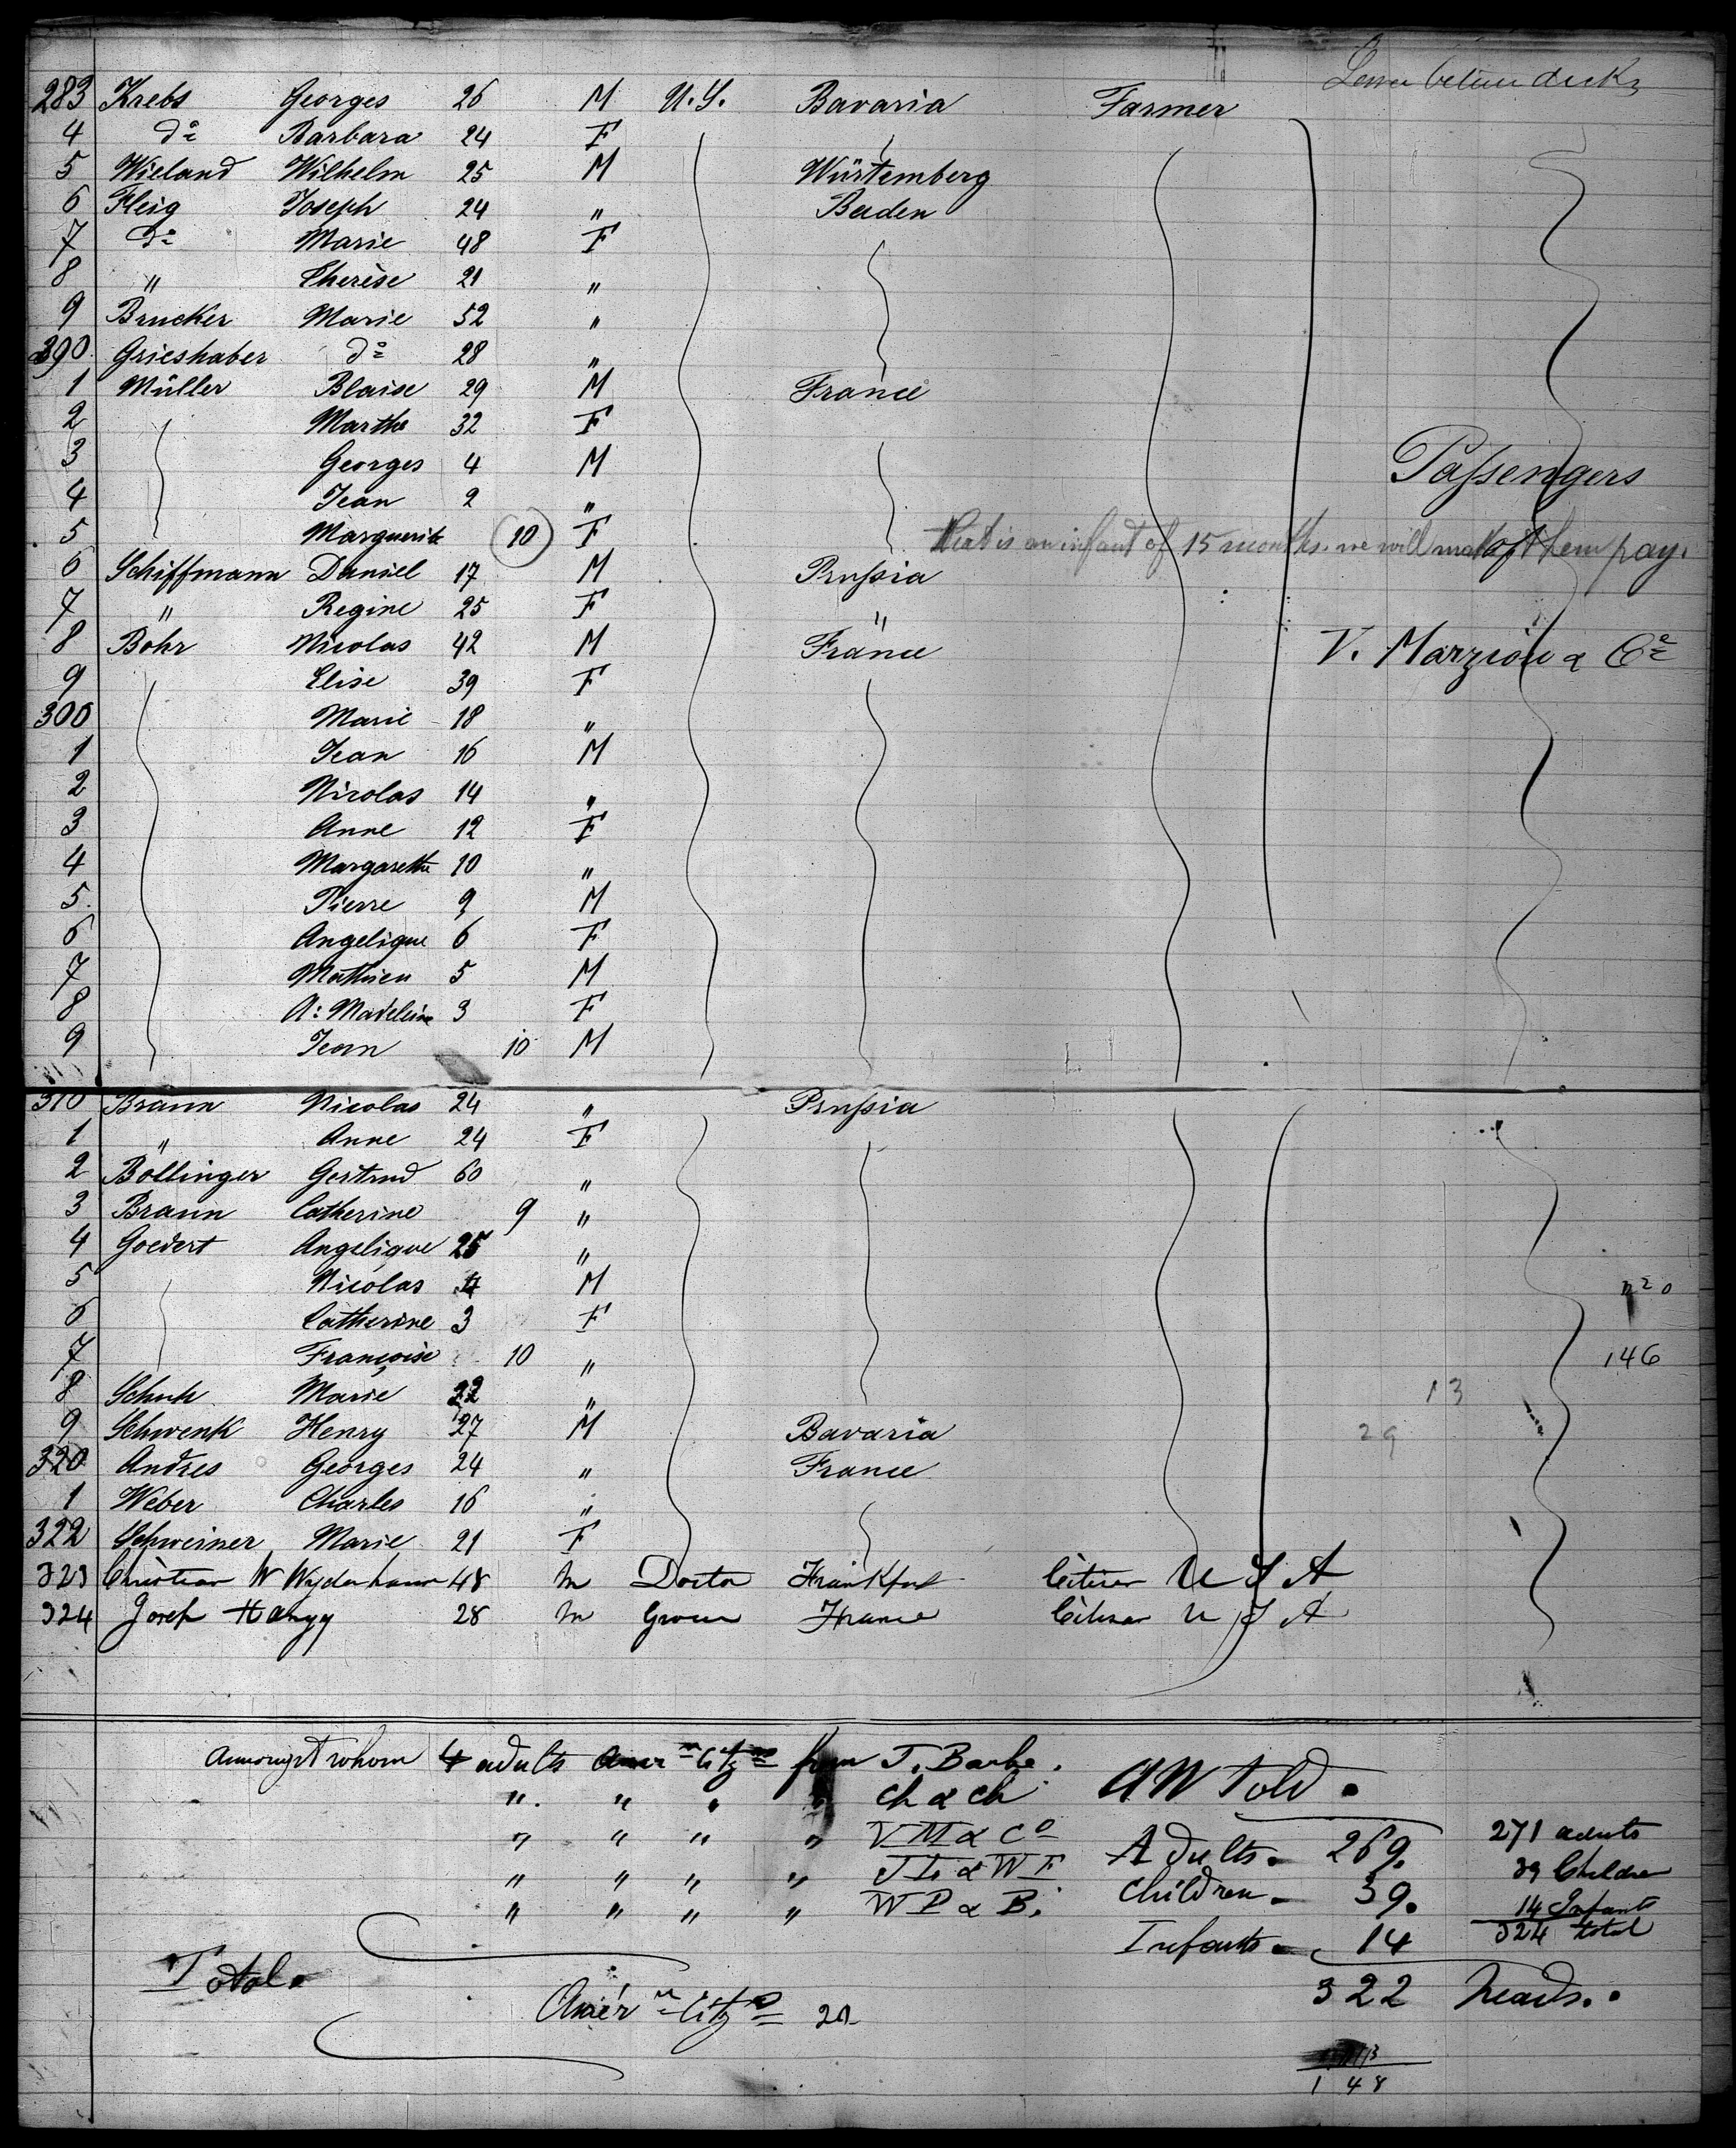 Lower between decks
283 Krebs Georges 26 M N.Y. Bavaria Farmer
4 dº Barbara 24 F
5 Wieland Wilhelm 25 M Würtemberg
6 Fleig Joseph 24 " Baden
7 dº Marie 48 F
8 " Therèse 21 "
9 Brucker Marie 52 "
290 Grieshaber dº 28 "
1 Müller Blaise 29 M France
2 Marthe 32 F
3 Georges 4 M Passengers
4 Jean 2 "
5 Marguerite 10 F that is an infant of 15 months. we will make them pay.
6 Schiffmann Daniel 17 M Prussia
7 " Regine 25 F "
8 Bohr Nicolas 42 M France V. Marziou & Cº
9 Elise 39 F
300 Marie 18 "
1 Jean 16 M
2 Nicolas 14 "
3 Anne 12 F
4 Margarethe 10 "
5 Pierre 9 M
6 Angelique 6 F
7 Mathieu 5 M
8 A: Madeleine 3 F
9 Jean 10 M
310 Braun Nicolas 24 " Prussia
1 " Anne 24 F
2 Böllinger Gertrud 60 "
3 Braun Catherine 9 "
4 Goedert Angelique 25 "
5 Nicolas 4 M
6 Catherine 3 F
7 Françoise 10 " 146
8 Schuh Marie 22 " 13
9 Schwenk Henry 27 M Bavaria 29
320 Andres Georges 24 " France
1 Weber Charles 16 "
322 Schweiner Marie 21 F
323 Christian W 48 m Doctor Frankfurt Citizen U S A
324 Joseph Hangy 28 m Grocer France Citizen U S A
Amongst whom 4 adults Amer n Citz ns from J. Barbe.
" " " " Ch & Ch
" " " " V M & Cº
" " " " J L & W F
" " " " W P & B.
All told.
Adults. 269.
Children. 39.
Infants. 14
322 heads.
271 adults
39 Children
14 Infants
324 total
Total.
Amer n Citz ns 20
148